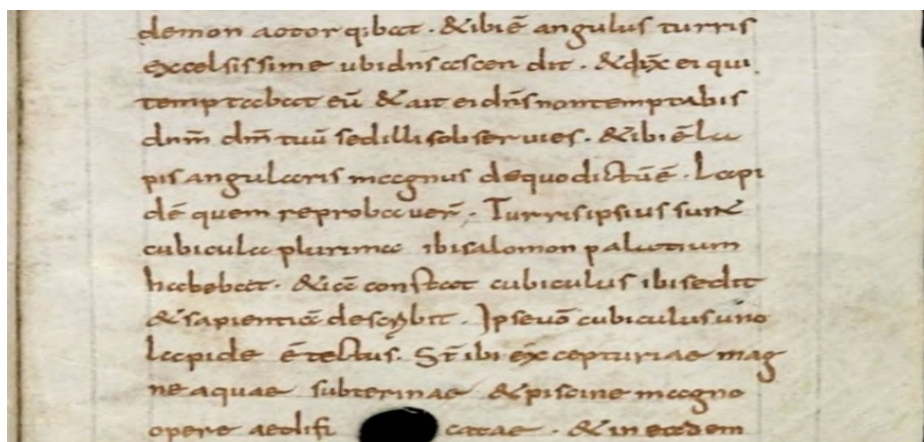 demon aotorq;bat · &ibiē angulus turris
excelsissime ubidn̄s ascen dit · &dix̄ ei qui
temptabat eū & ait ei dn̄s nontemptabis
dn̄m dm̄ tuū sedillisobservies · &ibiē la
pis angularis magnus dequodictūē · Lapi
dē quem reprobaver̄ · Turrisipsius sunt
cubicula plurima ibisalomon palatium
habebat · &iā constat cubiculus ibisedit
&sapientiā descrybit · Ipsevō cubiculusuno
lapide ētectus · St̄ ibi excepturiae mag
ne aquae subterinae &piscine magno
opere aedifi catae · & in eadem